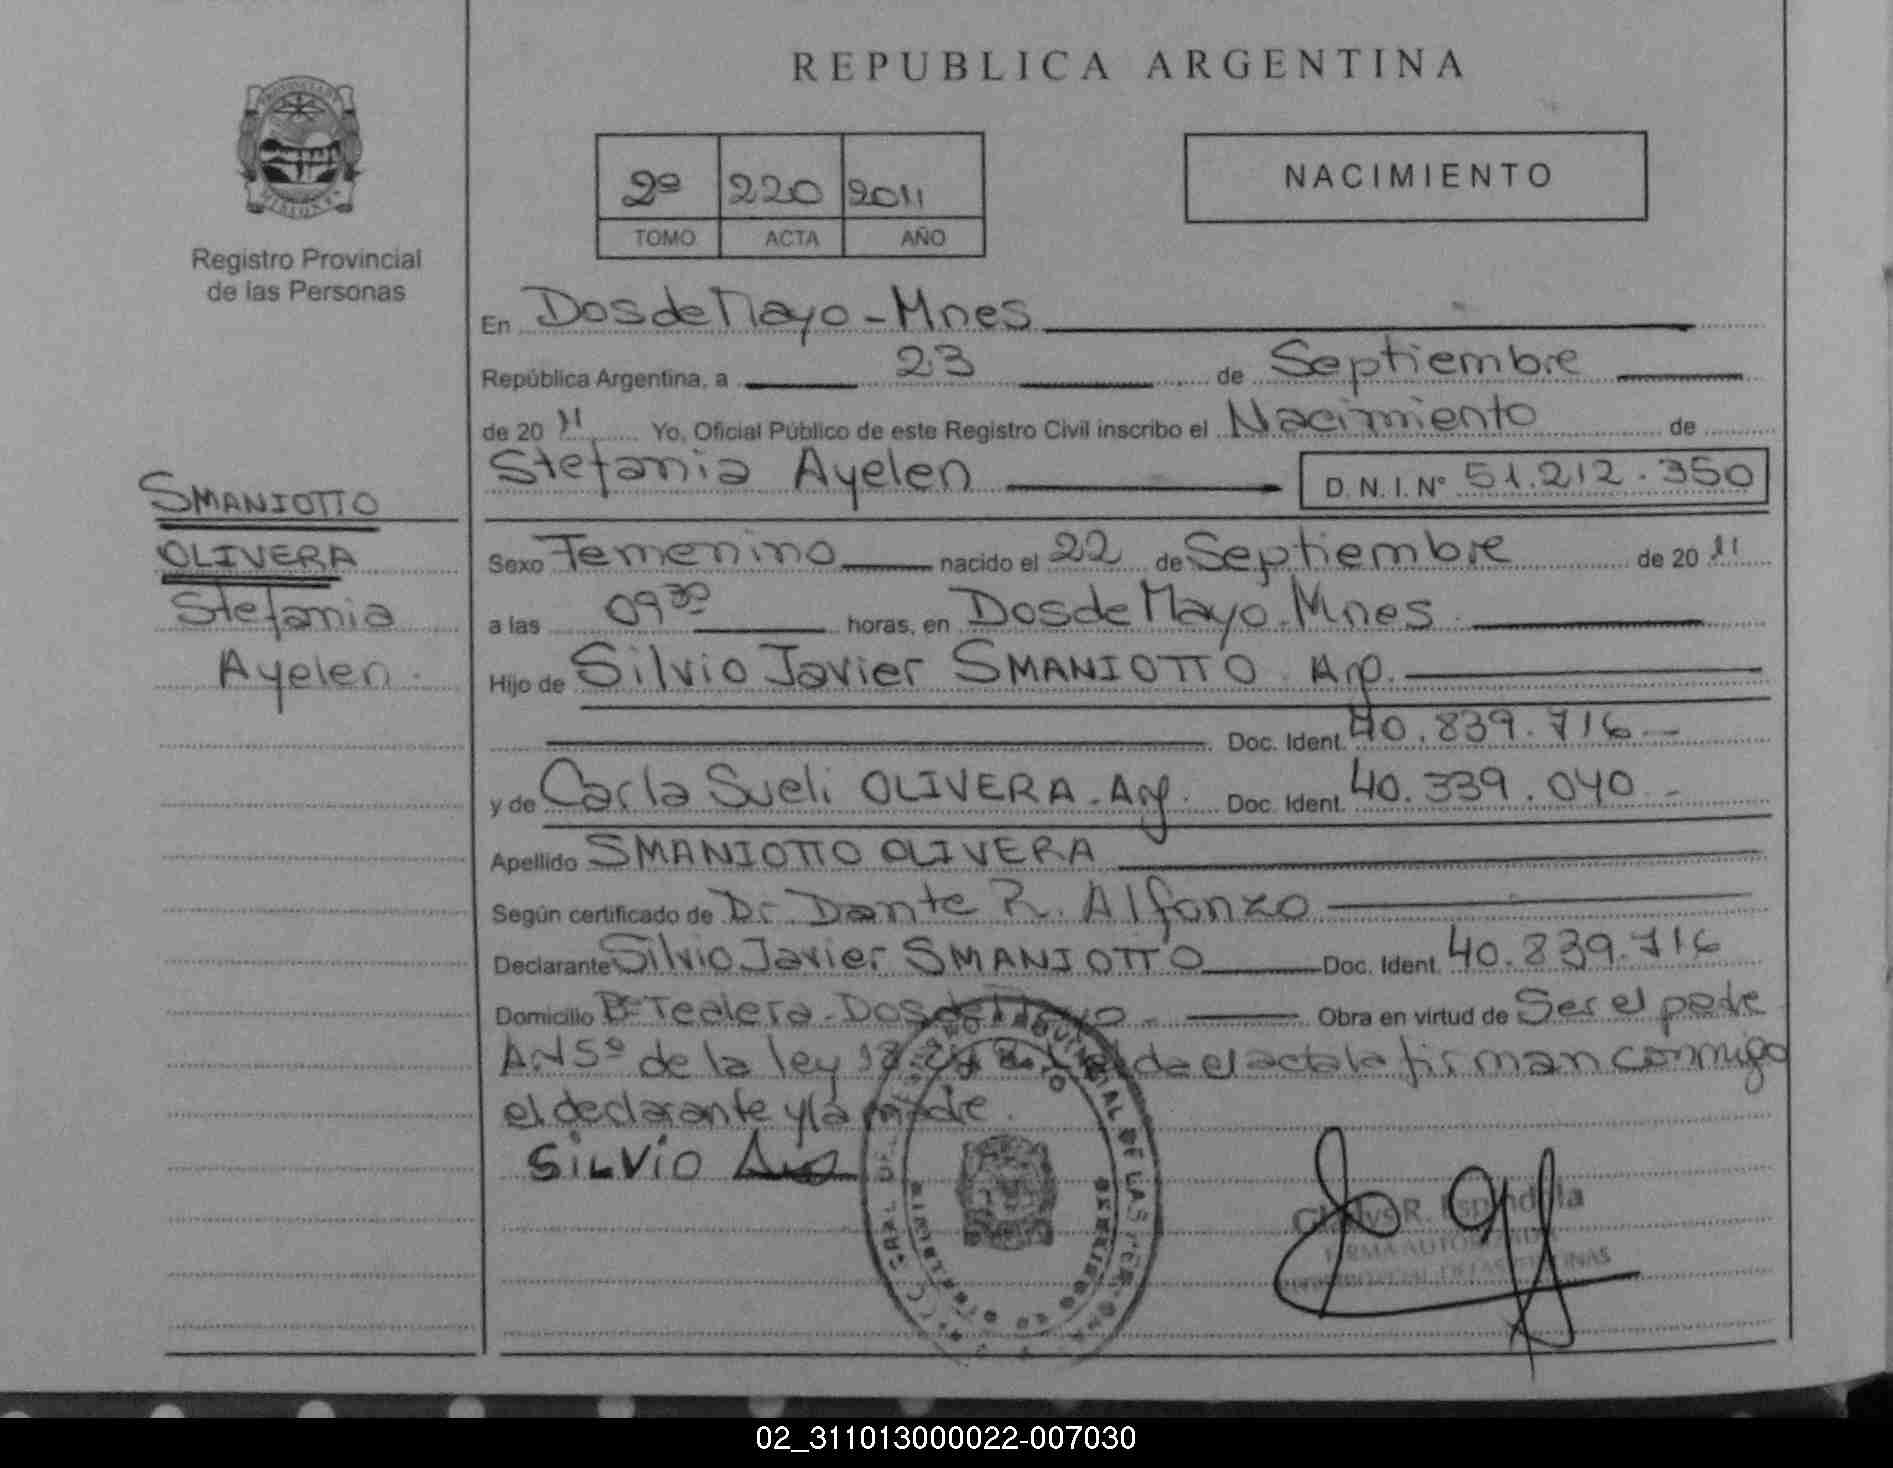 REPUBLICA ARGENTINA
2º 220 2011
TOMO ACTA AÑO
NACIMIENTO
Registro Provincial
de las Personas
SMANIOTTO
OLIVERA
Stefania
Ayelen.
En Dos de Mayo - Mnes
República Argentina, a 23 de Septiembre
de 2011 Yo, Oficial Público de este Registro Civil inscribo el Nacimiento de
Stefania Ayelen D. N. I. Nº 51.212.350
Sexo Femenino nacido el 22 de Septiembre de 2011
a las 09 30 horas, en Dos de Mayo - Mnes
Hijo de Silvio Javier SMANIOTTO Arg.
Doc. Ident. 40.839.716 -
y de Carla Sueli OLIVERA - Arg. Doc. Ident. 40.339.040 -
Apellido SMANIOTTO OLIVERA
Según certificado de Dr Dante R. Alfonzo
Declarante Silvio Javier SMANIOTTO Doc. Ident. 40.839.716
Domicilio Bº Tealera - Dos de Mayo - Obra en virtud de Ser el padre
Art 5º de la ley 18.248 el acta la firman conmigo
el declarante y la madre.
SiLViO
Gladys R. Espindola
FIRMA AUTORIZADA
02_311013000022-007030